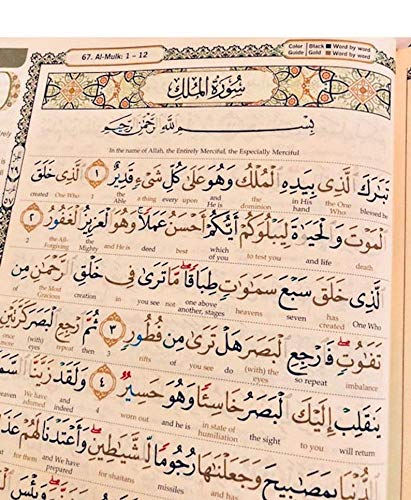 67. Al-Mulk: 1 – 12
Color Guide | Black ■ Word by word
Gold ■ Word by word
سُورَةُ الْمُلْكِ
بِسْمِ اللَّهِ الرَّحْمَٰنِ الرَّحِيمِ
In the name of Allah, the Entirely Merciful, the Especially Merciful
تَبَٰرَكَ الَّذِي بِيَدِهِ الْمُلْكُ وَهُوَ عَلَىٰ كُلِّ شَيْءٍ قَدِيرٌ ١ الَّذِي خَلَقَ
blessed be the One Who in His Hand the dominion and He upon every a thing Able 1 One Who created
الْمَوْتَ وَالْحَيَوٰةَ لِيَبْلُوَكُمْ أَيُّكُمْ أَحْسَنُ عَمَلًا وَهُوَ الْعَزِيزُ الْغَفُورُ ٢
death and life to test you which of you best deed and He is the Mighty the All-Forgiving 2
الَّذِي خَلَقَ سَبْعَ سَمَٰوَٰتٍ طِبَاقًا مَّا تَرَىٰ فِي خَلْقِ الرَّحْمَٰنِ مِن
One Who has created seven heavens one above another, stages not you see in creation the Most Gracious of
تَفَٰوُتٍ فَارْجِعِ الْبَصَرَ هَلْ تَرَىٰ مِن فُطُورٍ ٣ ثُمَّ ارْجِعِ الْبَصَرَ كَرَّتَيْنِ
imbalance so repeat the eyes (with) do you see of rifts 3 then repeat (with) eyes once
يَنقَلِبْ إِلَيْكَ الْبَصَرُ خَاسِئًا وَهُوَ حَسِيرٌ ٤ وَلَقَدْ زَيَّنَّا
will return to you the sight in state of humiliation and he is worn out 4 and indeed We have adorned
بِمَصَٰبِيحَ وَجَعَلْنَٰهَا رُجُومًا لِّلشَّيَٰطِينِ وَأَعْتَدْنَا لَهُمْ
and has missiles for shaitans and We have prepared for them
وَبِئْسَ